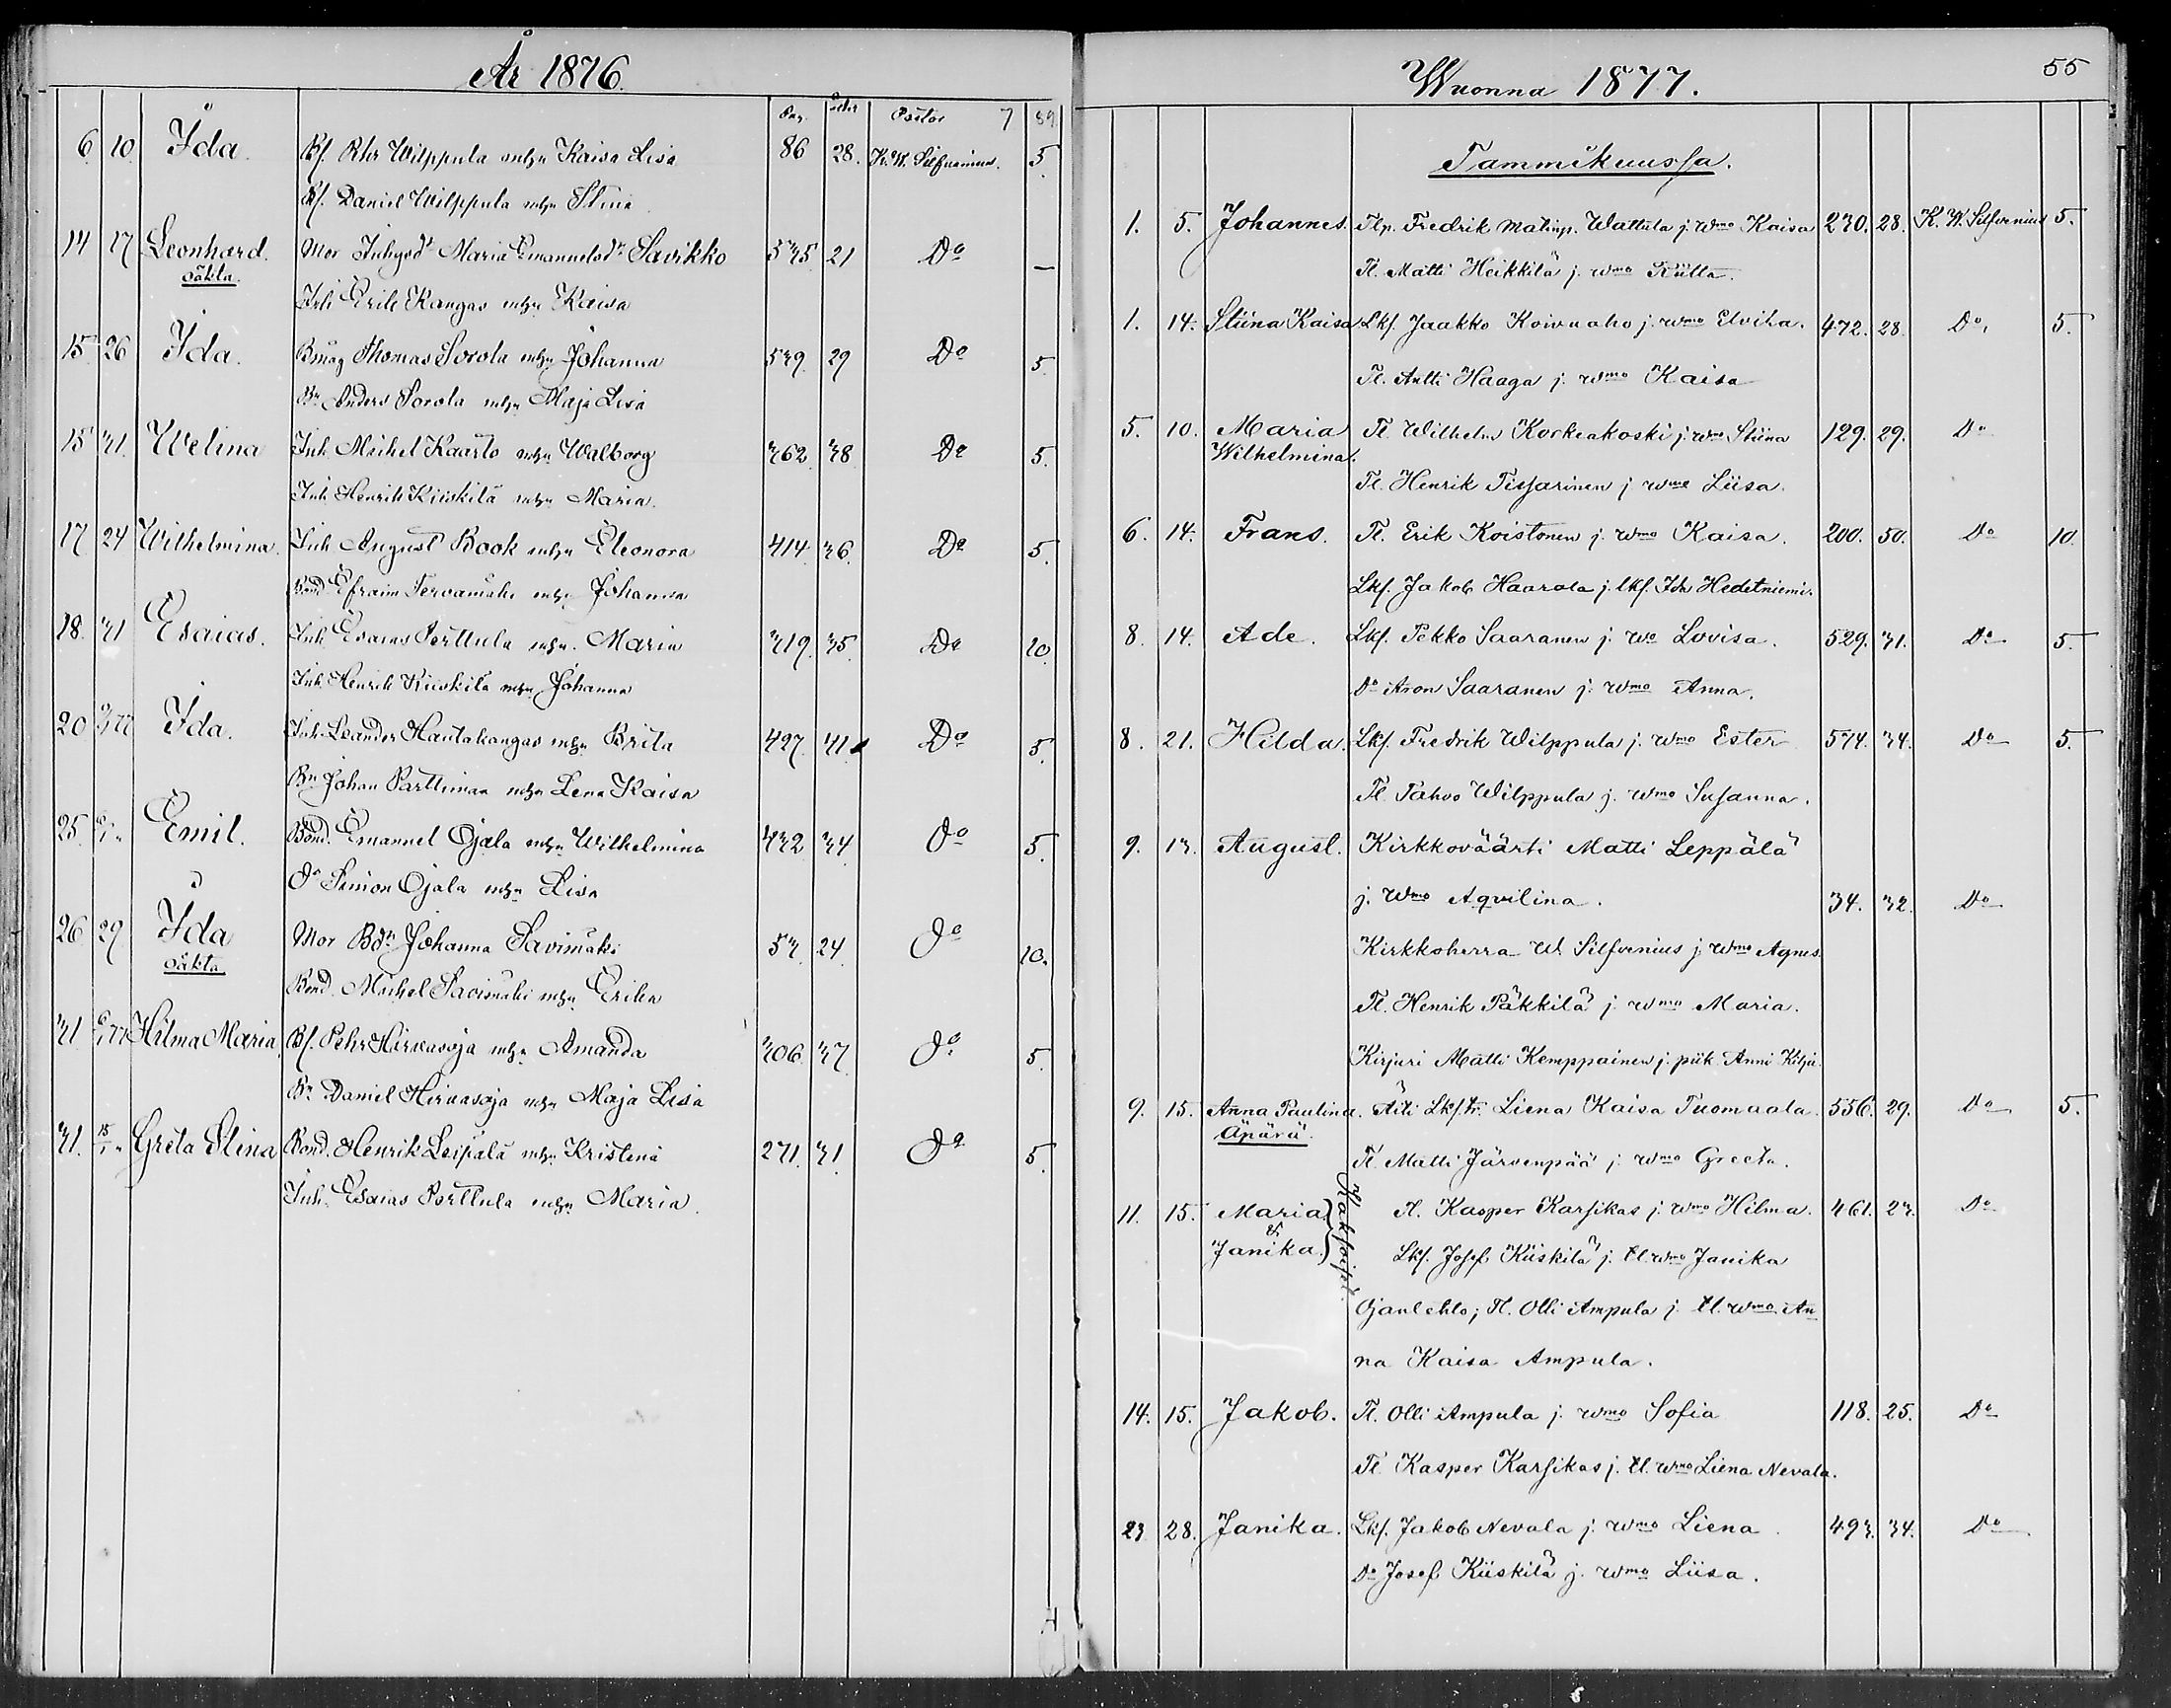 År 1876.
Pag. ålder Pastor 7 89
6. 10 Ida. Bf. Phr Wilppula m. h. u. Kaisa Lisa 86 28. K. W. Silfvenius. 5.
Bf. Daniel Wilppula mhu Stina
14 17 Leonhard. Mor Inhysd:r Maria Emanuelsd:r Savikko 575 21 Do —
oäkta.
Inh Erik Kangas mhu Kaisa
15 26 Ida. Thomas Sorola mhu Johanna 579. 29 Do 5
Bn Anders Sorola mhu Maja Lisa
15 31 Welina Inh. Michel Kaarto mhu Walborg 362. 38 Do 5.
Inh. Henrik Kiiskilä mhu Maria.
17 24 Wilhelmina. Inh August Book mhu Eleonora 414. 36. Do 5.
Bond Efraim Tervamäki mhu Johanna
18. 31 Esaias. Inh. Esaias Perttula mhu. Maria 319. 35. Do 10.
Inh. Henrik Kiiskilä mhu Johanna
20 Ida. Inh. Leander Hautakangas mhu Brita 427. 41. Do 5.
Bn Johan Parttimaa mhu Lena Kaisa
25. Emil. Bond. Emanuel Ojala mhu Wilhelmina 432 34 Do 5.
Do Simon Ojala mhu Lisa
26 29 Ida Mor Bdr Johanna Savimäki 53. 24. Do 10.
oäkta.
Bond. Michel Savimäki mhu Erika
31 6/1 77 Hilma Maria. Bf. Pehr Hirvasoja mhu Amanda 306. 37. Do 5.
Bn Daniel Hirvasoja mhu Maja Lisa
31. 15/1 " Greta Stina Bond. Henrik Leipälä mhu Kristina 271. 31. Do 5.
Inh. Esaias Perttula mhu Maria.
55
Wuonna 1877.
Tammikuussa.
1. 5. Johannes. Tlp. Fredrik Matinp. Wattula j. wmo Kaisa 270. 28. K. W. Silfvenius 5.
Tl. Matti Heikkilä j. wmo Riitta.
1. 14. Stiina Kaisa Lkf. Jaakko Koivuaho j. wmo Elvika. 472. 28. Do, 5.
Tl. Antti Haaga j. wmo Kaisa
5. 10. Maria Tl. Wilhelm Korkeakoski j. wmo Stiina 129. 29. Do
Wilhelmina.
Tl. Henrik Tissarinen j wmo Liisa.
6. 14. Frans. Tl. Erik Koistonen j. wmo Kaisa. 200. 50. Do 10.
Lkf. Jakob Haarala j. lkf. Ida Hedetniemi.
8. 14. Ade. Lkf. Pekko Saaranen j. wo Lovisa. 529. 31. Do 5.
Do Aron Saaranen j. wmo Anna.
8. 21. Hilda. Lkf. Fredrik Wilppula j. wmo Ester 574. 34. Do 5.
Tl. Pahvo Wilppula j. wmo Susanna.
9. 13. August. Kirkkoväärti Matti Leppälä
j. wmo Aqvilina. 34. 32. Do
Kirkkoherra W. Silfvenius j. wmo Agnes.
Tl. Henrik Päkkilä j. wmo Maria.
Kirjuri Matti Kemppainen j. piik. Anni Kilju.
9. 15. Anna Paulina. Äiti Lkf. tr. Liena Kaisa Tuomaala. 556. 29. Do 5.
Äpärä.
Tl. Matti Järvenpää j. wmo Greeta.
11. 15. Maria Tl. Kasper Karsikas j. wmo Hilma. 461. 23. Do
&
Janika. Kaksoiset. Lkf. Josef Kiiskilä j. tl. wmo Janika
Ojanlehto; Tl. Olli Ampula j. tl. wmo An
na Kaisa Ampula.
14. 15. Jakob. Tl. Olli Ampula j. wmo Sofia 118. 25. Do
Tl. Kasper Karsikas j. tl. wmo Liena Nevala.
23 28. Janika. Lkf. Jakob Nevala j. wmo Liena. 493. 34. Do
Do Josef Kiiskilä j. wmo Liisa.